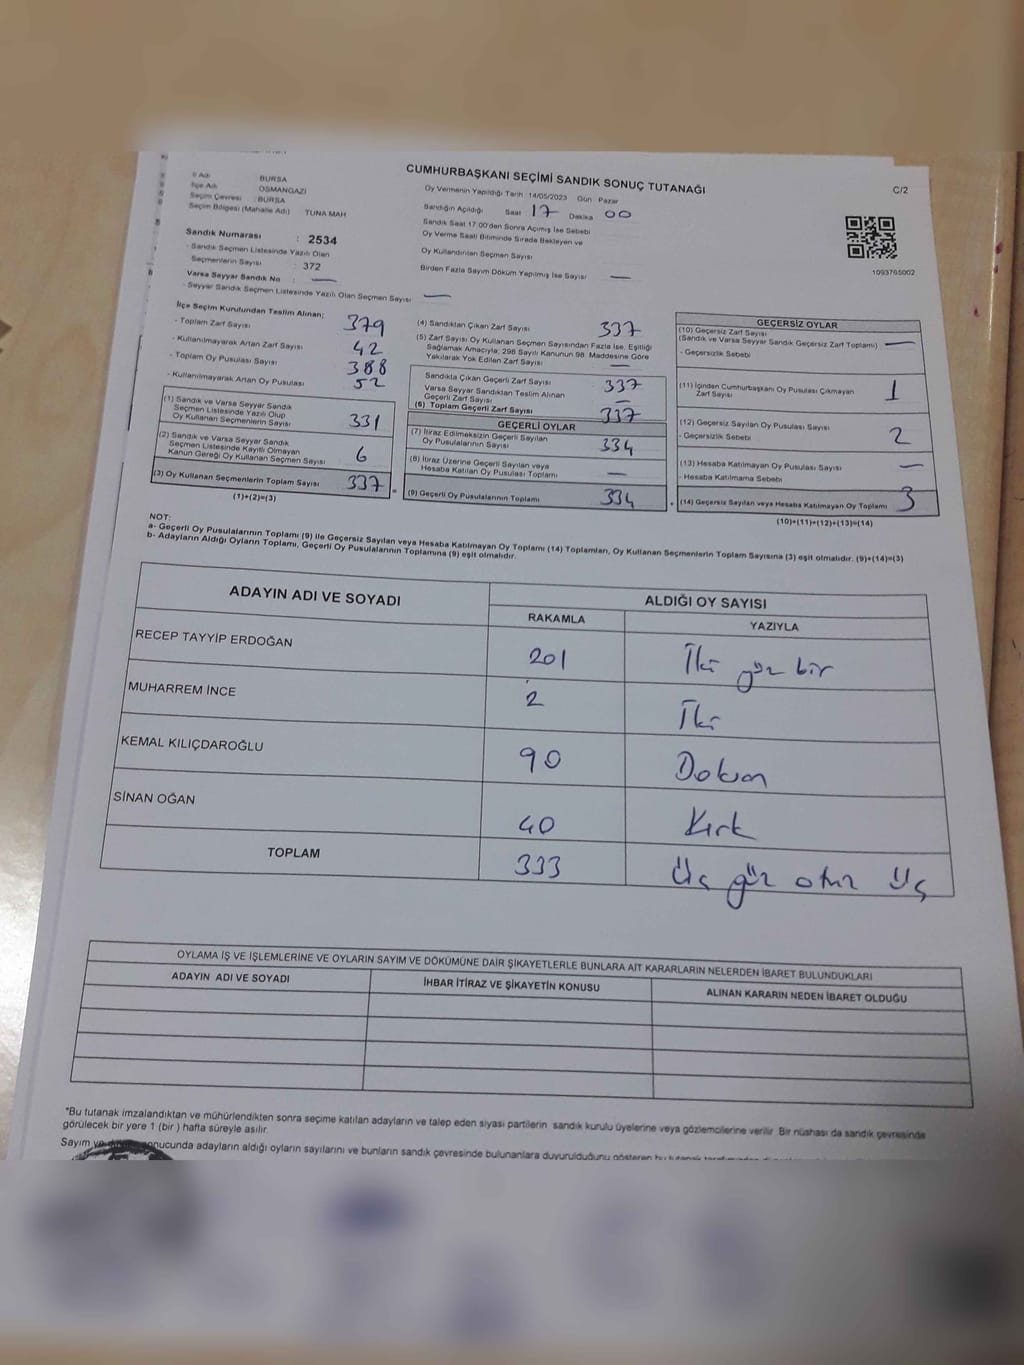 CUMHURBAŞKANI SEÇİMİ SANDIK SONUÇ TUTANAĞI
C/2
İl Adı BURSA
İlçe Adı OSMANGAZİ
Seçim Çevresi : BURSA
Seçim Bölgesi (Mahalle Adı) TUNA MAH
Oy Vermenin Yapıldığı Tarih : 14/05/2023 Gün Pazar
Sandığın Açıldığı Saat 17 Dakika 00
Sandık Saat 17:00'dan Sonra Açılmış İse Sebebi
Oy Verme Saati Bitiminde Sırada Bekleyen ve
Oy Kullandırılan Seçmen Sayısı
Birden Fazla Sayım Döküm Yapılmış İse Sayısı —
Sandık Numarası : 2534
- Sandık Seçmen Listesinde Yazılı Olan
Seçmenlerin Sayısı : 372
Varsa Seyyar Sandık No : —
- Seyyar Sandık Seçmen Listesinde Yazılı Olan Seçmen Sayısı —
1093765002
İlçe Seçim Kurulundan Teslim Alınan;
- Toplam Zarf Sayısı 379
- Kullanılmayarak Artan Zarf Sayısı 42
- Toplam Oy Pusulası Sayısı 388
- Kullanılmayarak Artan Oy Pusulası 52
(1) Sandık ve Varsa Seyyar Sandık
Seçmen Listesinde Yazılı Olup
Oy Kullanan Seçmenlerin Sayısı 331
(2) Sandık ve Varsa Seyyar Sandık
Seçmen Listesinde Kayıtlı Olmayan
Kanun Gereği Oy Kullanan Seçmen Sayısı 6
(3) Oy Kullanan Seçmenlerin Toplam Sayısı 337
(1)+(2)=(3)
(4) Sandıktan Çıkan Zarf Sayısı 337
(5) Zarf Sayısı Oy Kullanan Seçmen Sayısından Fazla İse, Eşitliği
Sağlamak Amacıyla; 298 Sayılı Kanunun 98. Maddesine Göre
Yakılarak Yok Edilen Zarf Sayısı —
Sandıkta Çıkan Geçerli Zarf Sayısı 337
Varsa Seyyar Sandıktan Teslim Alınan
Geçerli Zarf Sayısı —
(6) Toplam Geçerli Zarf Sayısı 337
GEÇERLİ OYLAR
(7) İtiraz Edilmeksizin Geçerli Sayılan
Oy Pusulalarının Sayısı 334
(8) İtiraz Üzerine Geçerli Sayılan veya
Hesaba Katılan Oy Pusulası Toplamı —
(9) Geçerli Oy Pusulalarının Toplamı 334
GEÇERSİZ OYLAR
(10) Geçersiz Zarf Sayısı
(Sandık ve Varsa Seyyar Sandık Geçersiz Zarf Toplamı) —
- Geçersizlik Sebebi
(11) İçinden Cumhurbaşkanı Oy Pusulası Çıkmayan
Zarf Sayısı 1
(12) Geçersiz Sayılan Oy Pusulası Sayısı 2
- Geçersizlik Sebebi
(13) Hesaba Katılmayan Oy Pusulası Sayısı —
- Hesaba Katılmama Sebebi
(14) Geçersiz Sayılan veya Hesaba Katılmayan Oy Toplamı 3
(10)+(11)+(12)+(13)=(14)
NOT:
a- Geçerli Oy Pusulalarının Toplamı (9) ile Geçersiz Sayılan veya Hesaba Katılmayan Oy Toplamı (14) Toplamları, Oy Kullanan Seçmenlerin Toplam Sayısına (3) eşit olmalıdır. (9)+(14)=(3)
b- Adayların Aldığı Oyların Toplamı, Geçerli Oy Pusulalarının Toplamına (9) eşit olmalıdır.
ADAYIN ADI VE SOYADI ALDIĞI OY SAYISI
RAKAMLA YAZIYLA
RECEP TAYYİP ERDOĞAN 201 İki yüz bir
MUHARREM İNCE 2 İki
KEMAL KILIÇDAROĞLU 90 Doksan
SİNAN OĞAN 40 Kırk
TOPLAM 333 Üç yüz otuz Üç
OYLAMA İŞ VE İŞLEMLERİNE VE OYLARIN SAYIM VE DÖKÜMÜNE DAİR ŞİKAYETLERLE BUNLARA AİT KARARLARIN NELERDEN İBARET BULUNDUKLARI
ADAYIN ADI VE SOYADI İHBAR İTİRAZ VE ŞİKAYETİN KONUSU ALINAN KARARIN NEDEN İBARET OLDUĞU
*Bu tutanak imzalandıktan ve mühürlendikten sonra seçime katılan adayların ve talep eden siyasi partilerin sandık kurulu üyelerine veya gözlemcilerine verilir. Bir nüshası da sandık çevresinde
görülecek bir yere 1 (bir ) hafta süreyle asılır.
Sayım ve sonucunda adayların aldığı oyların sayılarını ve bunların sandık çevresinde bulunanlara duyurulduğunu gösteren bu tutanak